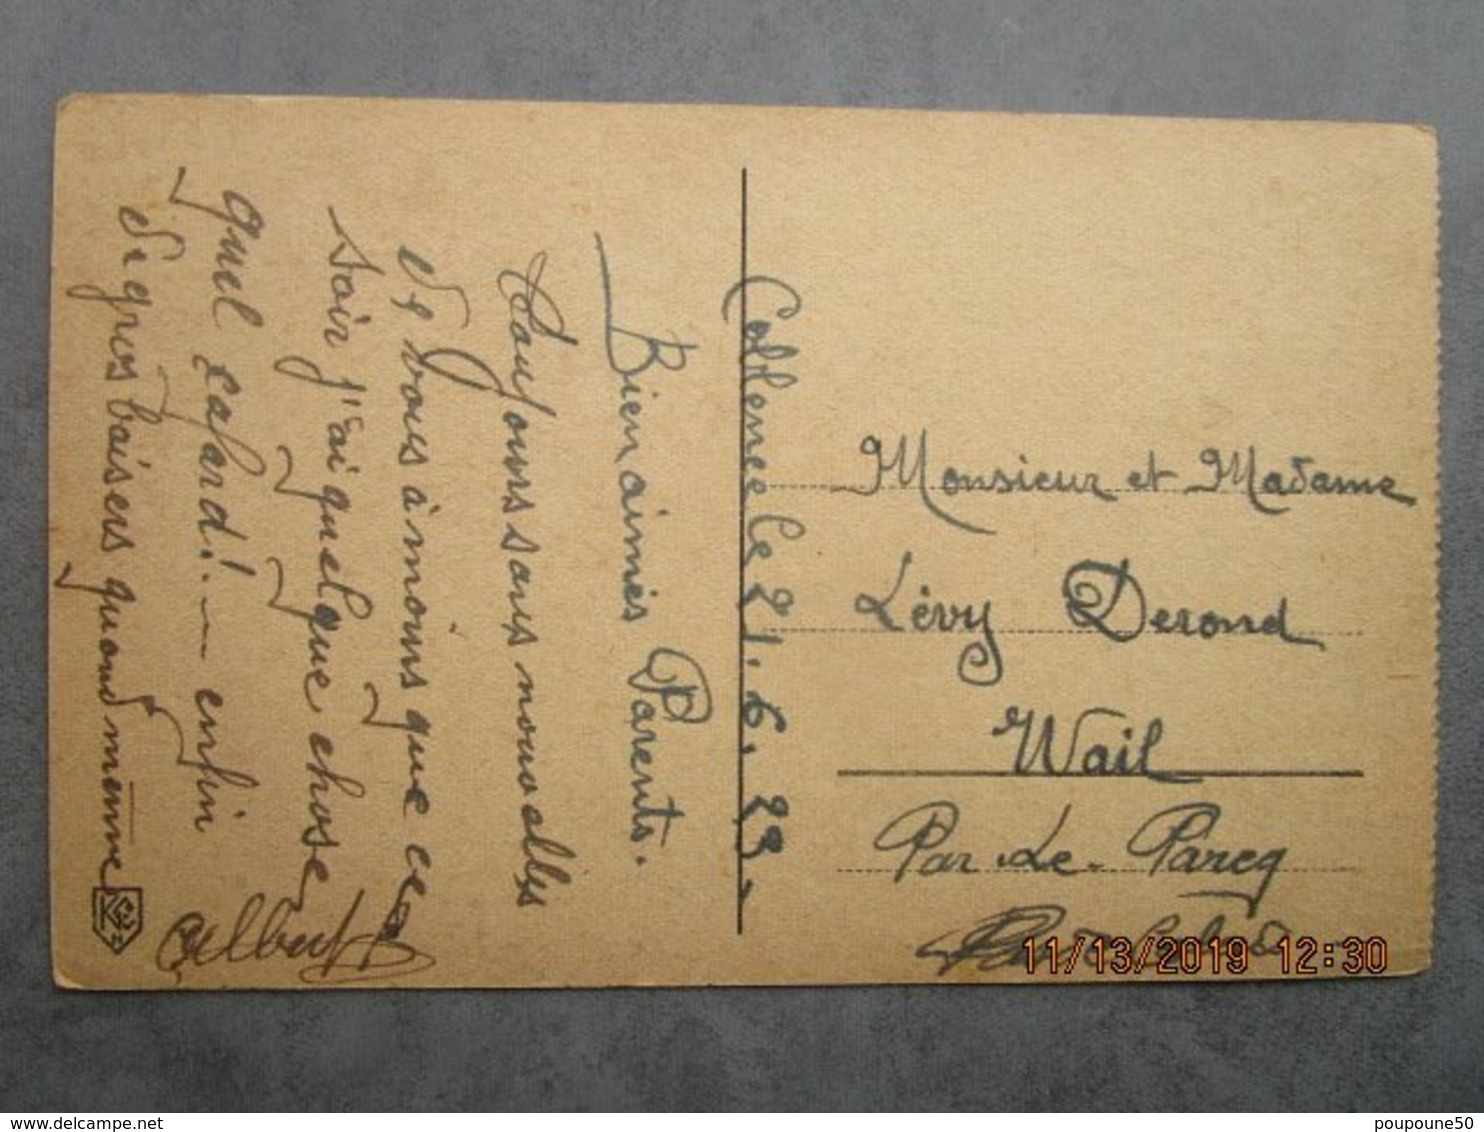 le 21.6.23.
Bien aimés Parents.
Toujours sans nouvelles
de vous à moins que ce
soir j'ai quelque chose
quel cafard! — enfin
de gros baisers quand même
Albert
Monsieur et Madame
Lévy Derond
Wail
Par Le Parcq
11/13/2019 12:30
poupoune50